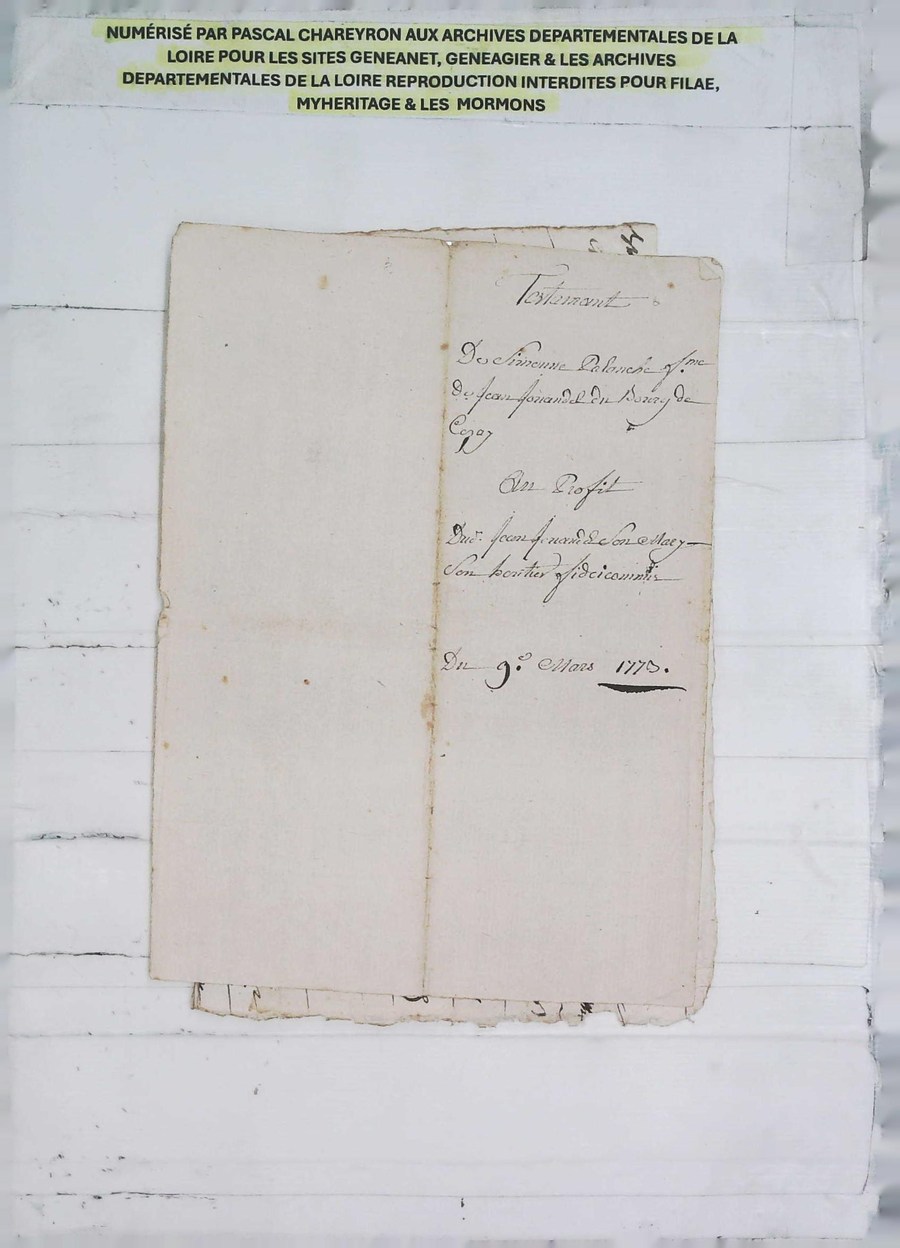 NUMÉRISÉ PAR PASCAL CHAREYRON AUX ARCHIVES DEPARTEMENTALES DE LA
LOIRE POUR LES SITES GENEANET, GENEAGIER & LES ARCHIVES
DEPARTEMENTALES DE LA LOIRE REPRODUCTION INTERDITES POUR FILAE,
MYHERITAGE & LES MORMONS
Testemant
De Simeune Palanche f.me
de Jean Jouandel du Bourg de
Cezay
Au Profit
Dud. Jean Jouandel Son Mary
Son heritier fideicommis
Du 9.e Mars 1773.